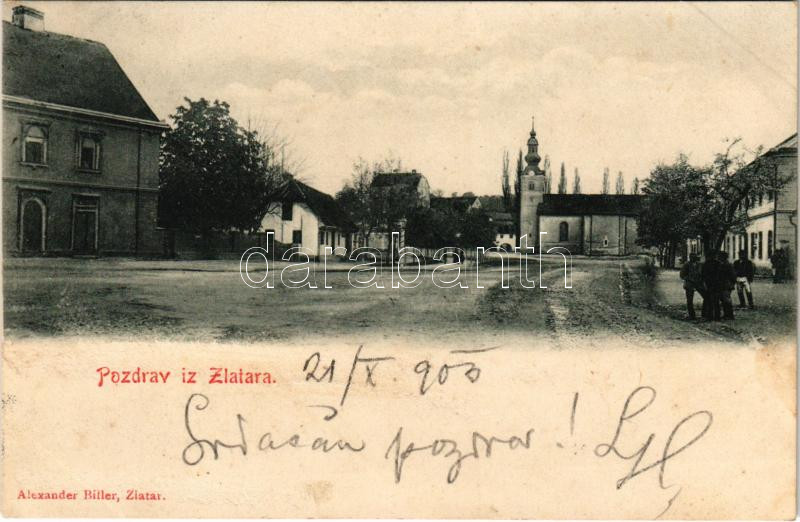 darabanth
Pozdrav iz Zlatara. 21/X 903
Srdačan pozdrav!
Alexander Biller, Zlatar.